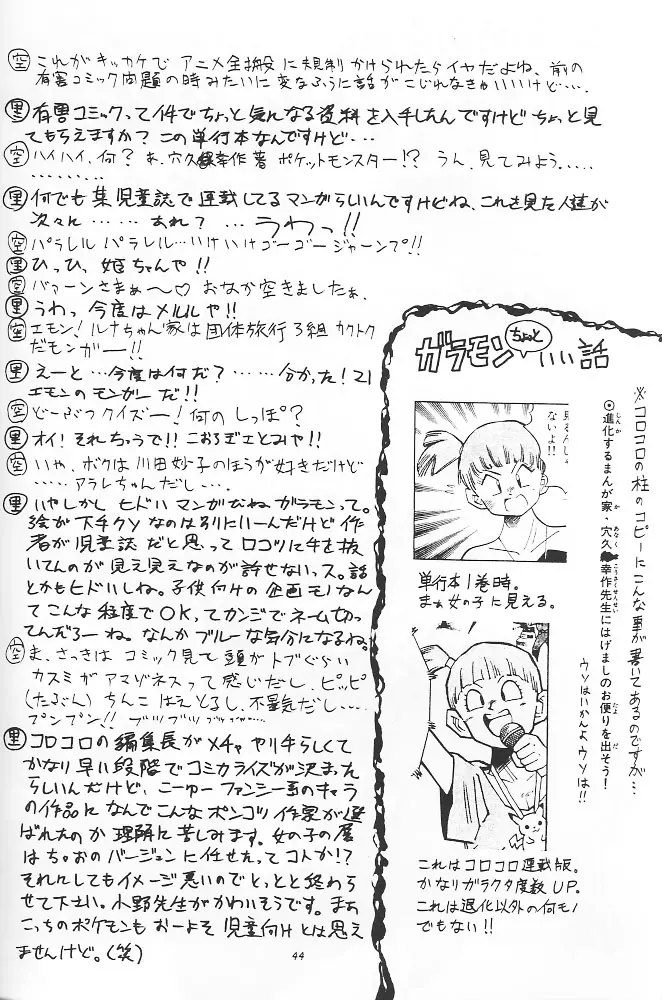 空 これがキッカケで アニメ全搬 に規制かけられたらイヤだよね、前の
有害コミック問題の時みたいに変なふうに話がこじれなきゃいいけど‥‥。
黒 有害コミックって件でちょっと気になる資料を入手したんですけどちょっと見
てもらえますか? この単行本なんですけど‥‥
空 ハイハイ、何? あ、穴久保幸作著 ポケットモンスター!? うん、見てみよう‥‥‥
‥‥‥‥
黒 何でも某児童誌で連載してるマンガらしいんですけどね、これを見た人達が
次々に‥‥‥‥あれ? ‥‥うわっ!!
空 パラレル パラレル‥‥いけいけゴーゴージャーンプ!!
黒 ひっひ、姫ちゃんや!!
空 バァーンさまぁ〜♡ おなか空きましたぁ、
黒 うわっ 今度はメルルや!!
空 エモン! ルナちゃん家は団体旅行3組 カクトク
だモンガー!!
黒 えーと‥‥今度は何だ?‥‥‥分かった! 21
エモンのモンガーだ!!
空 どーぶつクイズー! 何のしっぽ?
黒 オイ! それちゃうで!! こおろぎさとみや!!
空 いや、ボクは川田妙子のほうが好きだけど
‥‥‥アラレちゃんだし‥‥
黒 いやしかし ヒドいマンガだねガラモンって。
絵が下手クソなのは別にいーんだけど作
者が児童誌だと思ってロコツに手を抜
いてんのが見え見えなのが許せないっス。話
とかもヒドいしね。子供向けの企画モノなん
てこんな程度でOK、ってカンジでネーム切っ
てんだろーね。なんかブルーな気分になるね。
空 ま、さっきは コミック見て頭がトブぐらい
カスミがアマゾネスって感じだし、ピッピ
(たぶん) ちんこ はえとるし、不景気だし‥‥
プンプン!! ブツブツブツブツ‥‥
黒 コロコロの編集長がメチャやり手らしくて
かなり早い段階でコミカライズが決まった
らしいんだけど、こーゆーファンシー系のキャラ
の作品になんでこんなポンコツ作家が選
ばれたのか理解に苦しみます。女の子の層
はちゃおのバージョンに任せたってコトか!?
それにしてもイメージ悪いのでとっとと終わら
せて下さい。小野先生がかわいそうです。まあ
こっちのポケモンもおーよそ児童向けとは思え
ませんけど。(笑)
ガラモンちょっといい話
見るんじゃ
ないよ!!
単行本1巻時。
まあ女の子に見える。
これはコロコロ連載版。
かなりガラクタ度数UP。
これは退化以外の何モノ
でもない!!
※コロコロの柱のコピーにこんな事が書いてあるのですが‥‥
◎進化するまんが家・穴久保幸作先生にはげましのお便りを出そう!
ウソはいかんよウソは!!
44